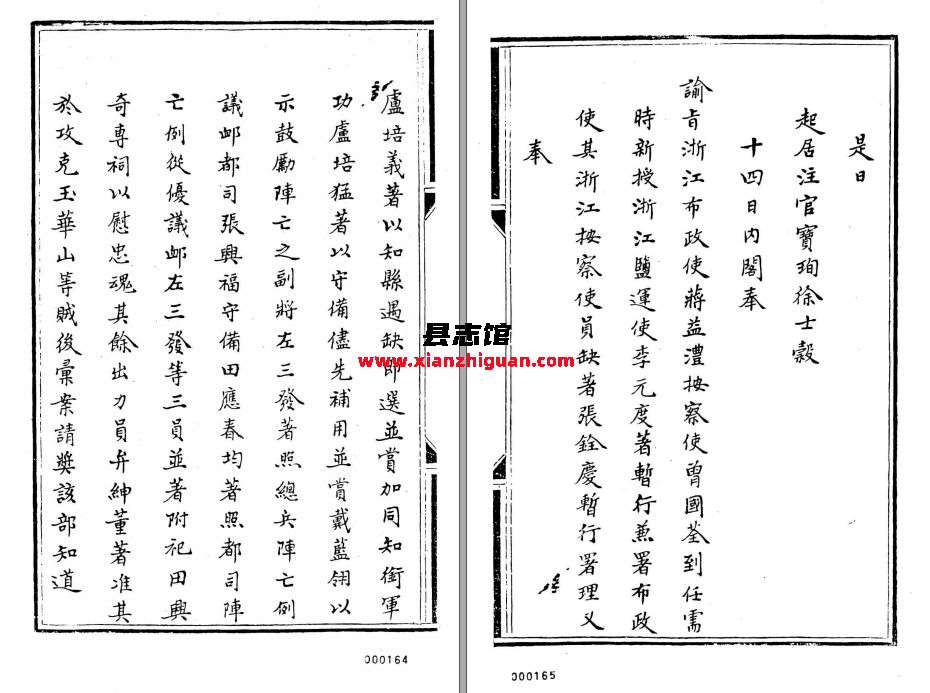 盧培義著以知縣遇缺即選並賞加同知銜軍
功盧培猛著以守備儘先補用並賞戴藍翎以
示鼓勵陣亡之副將左三發著照總兵陣亡例
議卹都司張興福守備田應春均著照都司陣
亡例從優議卹左三發等三員並著附祀田興
奇專祠以慰忠魂其餘出力員弁紳董著准其
於攻克玉華山等賊後彙案請奬該部知道
000164
是日
起居注官寶珣徐士穀
十四日內閣奉
諭旨浙江布政使蔣益澧按察使曾國荃到任需
時新授浙江鹽運使李元度著暫行兼署布政
使其浙江按察使員缺著張銓慶暫行署理又
奉
000165
县志馆
www.xianzhiguan.com